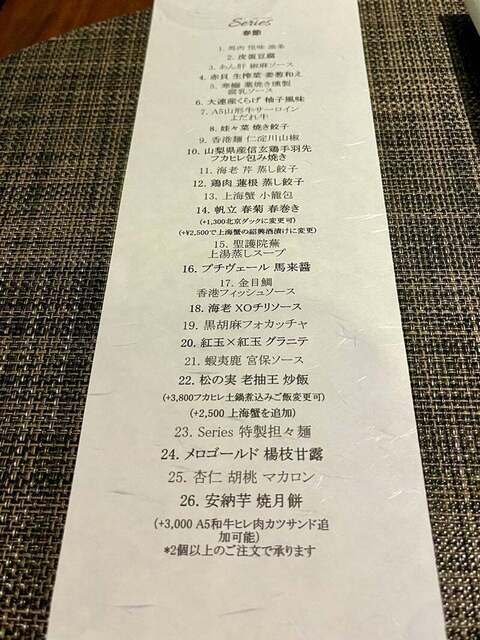 Series
春節
1. 馬肉 怪味 油条
2. 皮蛋豆腐
3. あん肝 椒麻ソース
4. 赤貝 生搾菜 姜葱和え
5. 寒鰆 藁焼き燻製
腐乳ソース
6. 大連産くらげ 柚子風味
7. A5山形牛サーロイン
よだれ牛
8. 娃々菜 焼き餃子
9. 香港麺 仁淀川山椒
10. 山梨県産信玄鶏手羽先
フカヒレ包み焼き
11. 海老 芹 蒸し餃子
12. 鶏肉 蓮根 蒸し餃子
13. 上海蟹 小籠包
14. 帆立 春菊 春巻き
(+1,300北京ダックに変更可)
(+¥2,500で上海蟹の紹興酒漬けに変更)
15. 聖護院蕪
上湯蒸しスープ
16. プチヴェール 馬来醤
17. 金目鯛
香港フィッシュソース
18. 海老 XOチリソース
19. 黒胡麻フォカッチャ
20. 紅玉×紅玉 グラニテ
21. 蝦夷鹿 宮保ソース
22. 松の実 老抽王 炒飯
(+3,800フカヒレ土鍋煮込みご飯変更可)
(+2,500 上海蟹を追加)
23. Series 特製担々麺
24. メロゴールド 楊枝甘露
25. 杏仁 胡桃 マカロン
26. 安納芋 焼月餅
(+3,000 A5和牛ヒレ肉カツサンド追
加可能)
*2個以上のご注文で承ります